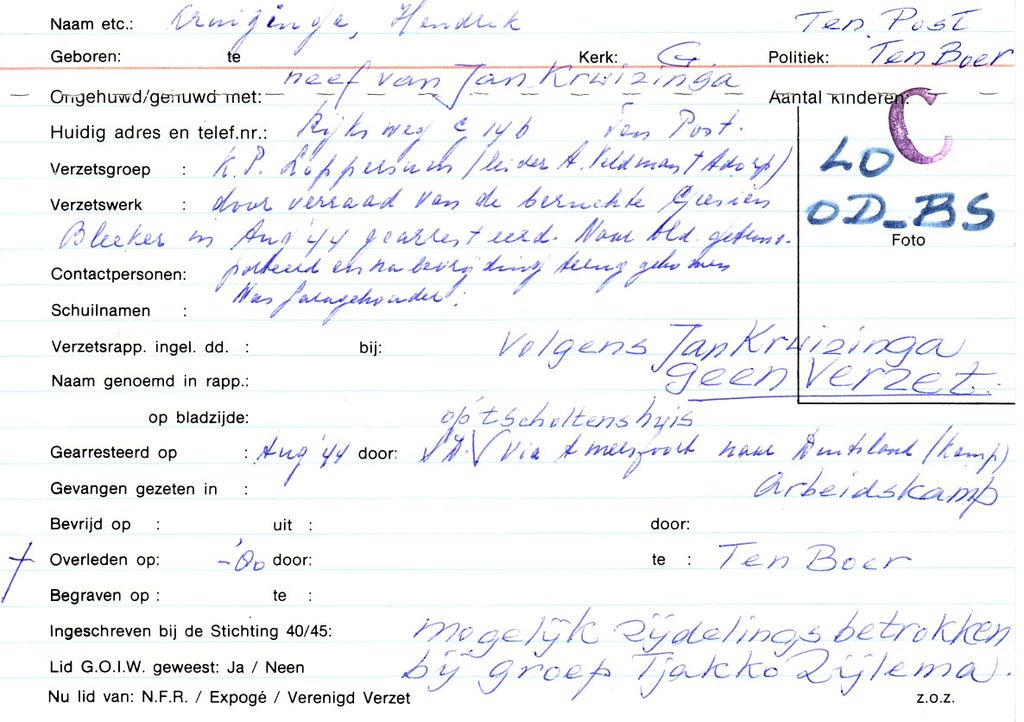 Naam etc.: Kruizinga, Hendrik Ten Post
Geboren: te Kerk: G. Politiek: Ten Boer
neef van Jan Kruizinga
Ongehuwd/gehuwd met: Aantal kinderen:
C
Huidig adres en telef.nr.: Rijksweg C 146 Ten Post.
LO
Verzetsgroep : K.P. Loppersum (leider A. Veldman † Adorp)
Verzetswerk : door verraad van de beruchte Gesien
OD-BS
Bleeker in Aug '44 gearresteerd. Naar Dld. getrans-
Foto
porteerd en na bevrijding terug gekomen
Contactpersonen:
Was garagehouder.
Schuilnamen :
Verzetsrapp. ingel. dd. : bij: Volgens Jan Kruizinga
Naam genoemd in rapp.: geen Verzet.
op bladzijde: op 't scholtenshuis
Gearresteerd op : Aug '44 door: SD. √ Via Amersfoort naar Duitsland (kamp)
Gevangen gezeten in : Arbeidskamp
Bevrijd op : uit : door:
† Overleden op: door: te : Ten Boer
Begraven op : te :
Ingeschreven bij de Stichting 40/45: mogelijk zijdelings betrokken
Lid G.O.I.W. geweest: Ja / Neen bij groep Tjakko Zijlema.
Nu lid van: N.F.R. / Expogé / Verenigd Verzet z.o.z.